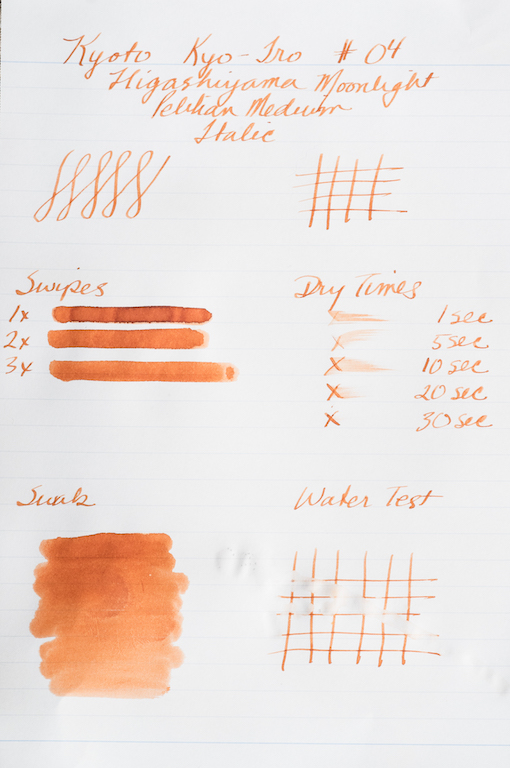 Kyoto Kyo-Iro #04
Higashiyama Moonlight
Pelikan Medium
Italic
Swipes
1x
2x
3x
Dry Times
x 1 sec
x 5 sec
x 10 sec
x 20 sec
x 30 sec
Swab
Water Test